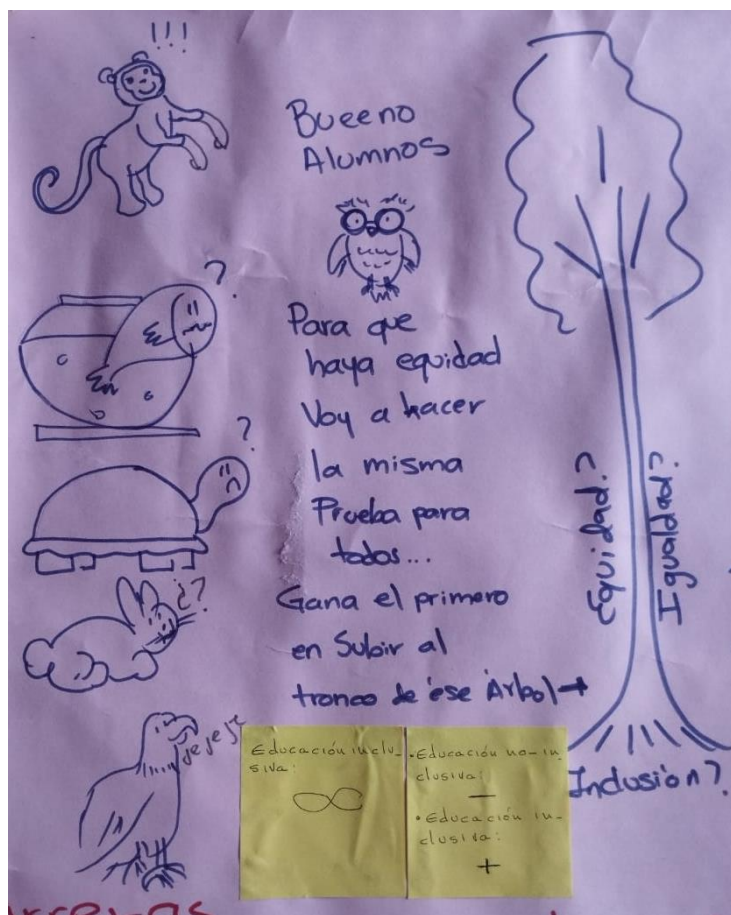 !!!
Bueeno
Alumnos
?
Para que
haya equidad
Voy a hacer
la misma
Prueba para
todos...
Gana el primero
en Subir al
tronco de ese Árbol →
?
¿?
je je je
Equidad?
Igualdad?
Inclusión?
Educación inclu-
siva:
∞
• Educación no-in
clusiva:
—
• Educación in-
clusiva:
+